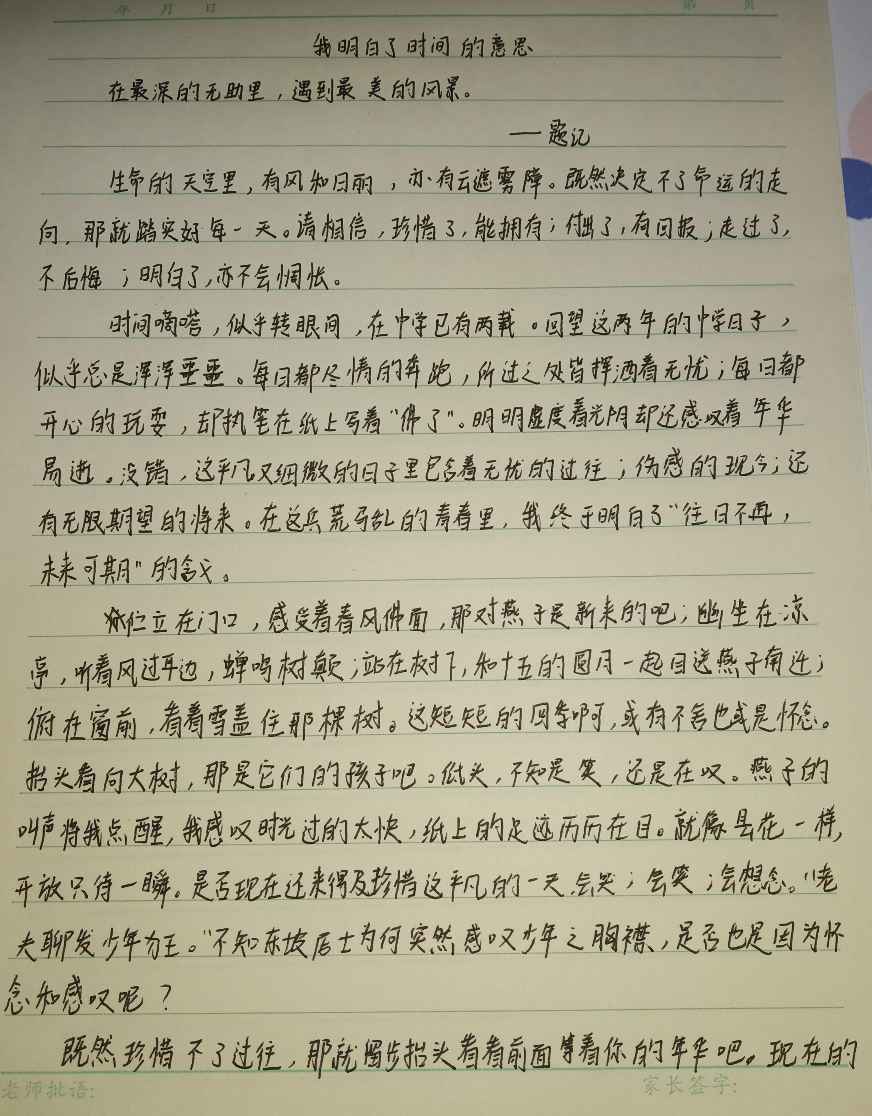 年 月 日 第 页
我明白了时间的意思
在最深的无助里，遇到最美的风景。
——题记
生命的天空里，有风和日丽，亦有云遮雾障。既然决定不了命运的走
向，那就踏实好每一天。请相信，珍惜了，能拥有；付出了，有回报；走过了，
不后悔；明白了，亦不会惆怅。
时间嘀嗒，似乎转眼间，在中学已有两载。回望这两年的中学日子，
似乎总是浑浑噩噩。每日都尽情的奔跑，所过之处皆挥洒着无忧；每日都
开心的玩耍，却执笔在纸上写着“佛了”。明明虚度着光阴却还感叹着年华
易逝。没错，这平凡又细微的日子里包含着无忧的过往；伤感的现今；还
有无限期望的将来。在这兵荒马乱的青春里，我终于明白了“往日不再，
未来可期”的含义。
伫立在门口，感受着春风佛面，那对燕子是新来的吧；幽坐在凉
亭，听着风过耳边，蝉鸣树颠；站在树下，和十五的圆月一起目送燕子南迁；
俯在窗前，看着雪盖住那棵树。这短短的四季啊，或有不舍也或是怀念。
抬头看向大树，那是它们的孩子吧。低头，不知是笑，还是在叹。燕子的
叫声将我点醒，我感叹时光过的太快，纸上的足迹历历在目。就像昙花一样，
开放只待一瞬。是否现在还来得及珍惜这平凡的一天，会哭；会笑；会想念。“老
夫聊发少年为王。”不知东坡居士为何突然感叹少年之胸襟，是否也是因为怀
念和感叹呢？
既然珍惜不了过往，那就阔步抬头看看前面等着你的年华吧。现在的
老师批语： 家长签字：